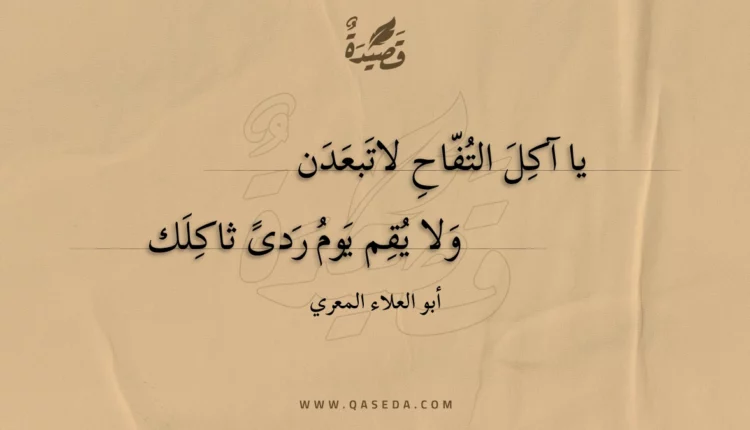 قَصِيدَةٌ
يا آكِلَ التُفّاحِ لاتَبعَدَن
وَلا يُقِم يَومُ رَدىً ثاكِلَك
أبو العلاء المعري
WWW.QASEDA.COM